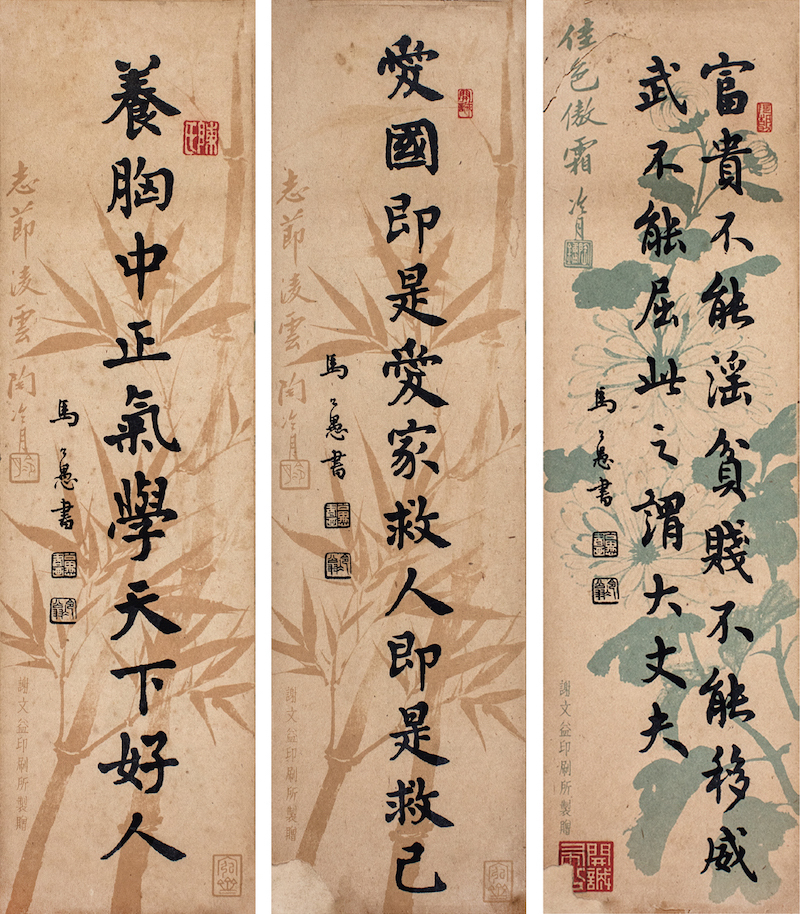 富貴不能淫貧賤不能移威
武不能屈此之謂大丈夫
馬公愚書
佳色傲霜 冷月
謝文益印刷所製贈
愛國即是愛家救人即是救己
馬公愚書
志節淩雲 陶冷月
謝文益印刷所製贈
陳氏
養胸中正氣學天下好人
馬公愚書
志節淩雲 陶冷月
謝文益印刷所製贈